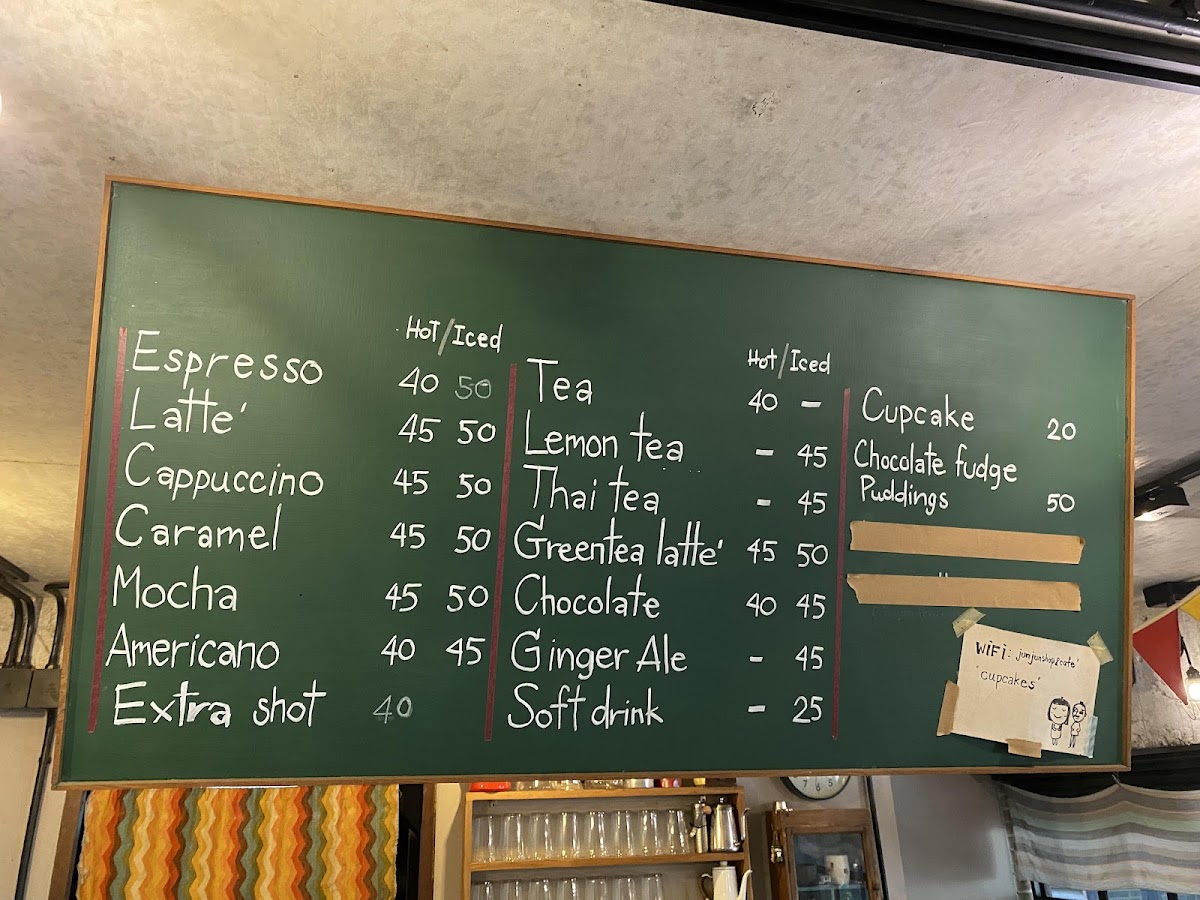 Hot/Iced
Espresso 40 50
Latte' 45 50
Cappuccino 45 50
Caramel 45 50
Mocha 45 50
Americano 40 45
Extra shot 40
Hot/Iced
Tea 40 -
Lemon tea - 45
Thai tea - 45
Greentea latte' 45 50
Chocolate 40 45
Ginger Ale - 45
Soft drink - 25
Cupcake 20
Chocolate fudge
Puddings 50
WiFi: junjunshop&cafe'
"cupcakes"
7 6 5